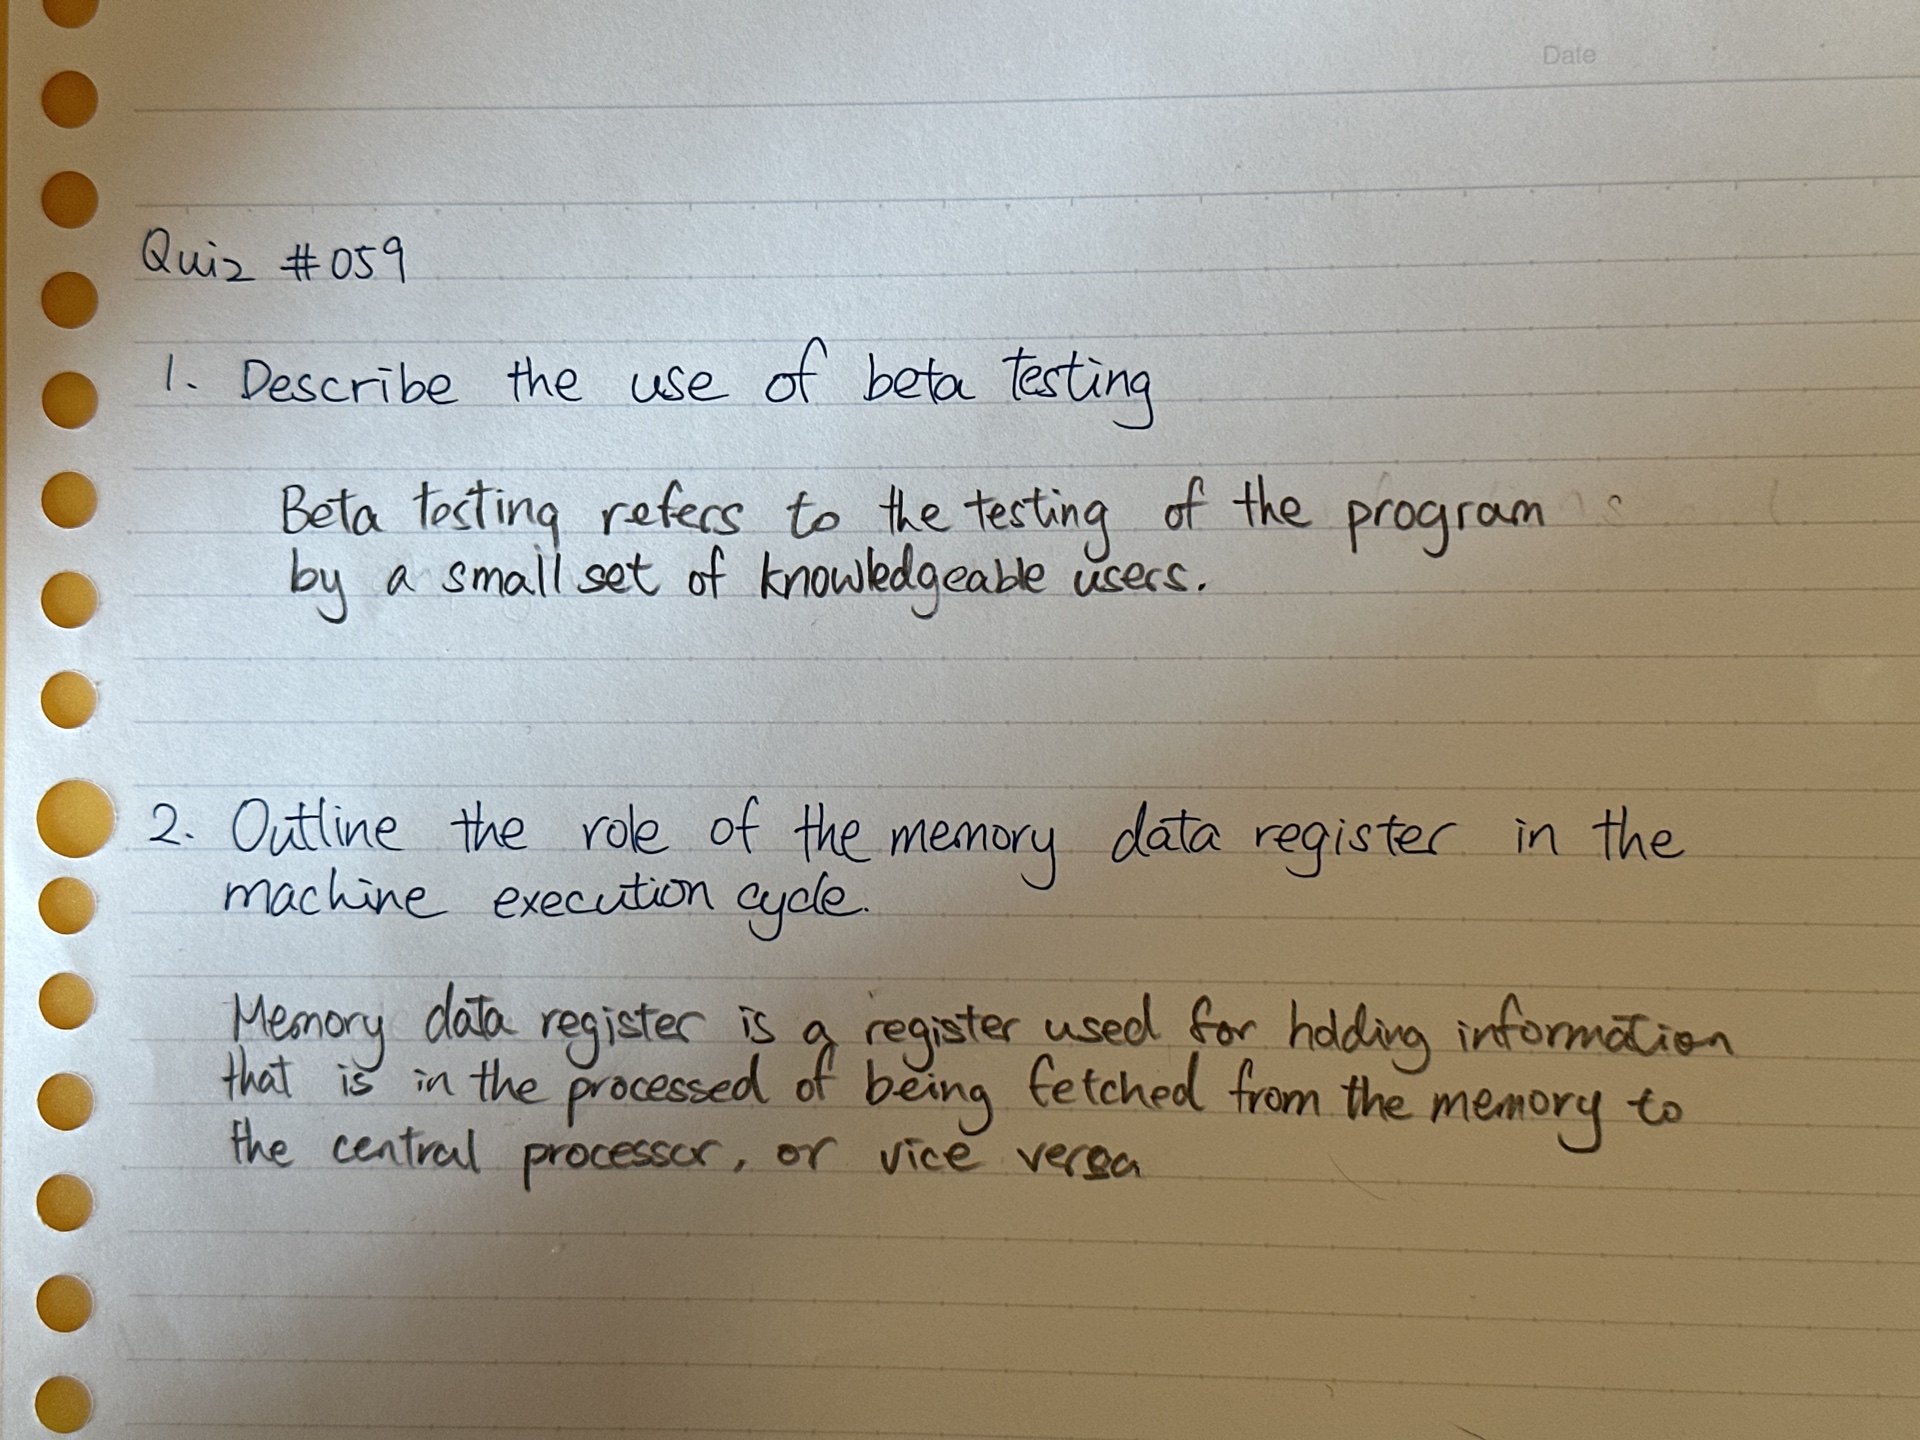 Date
Quiz #059
1. Describe the use of beta testing
Beta testing refers to the testing of the program
by a small set of knowledgeable users.
2. Outline the role of the memory data register in the
machine execution cycle.
Memory data register is a register used for holding information
that is in the processed of being fetched from the memory to
the central processor, or vice versa